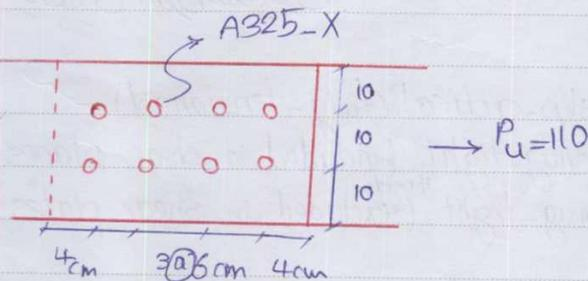 A325-X
10
10
10
Pu=110
4cm
3@6cm
4cm